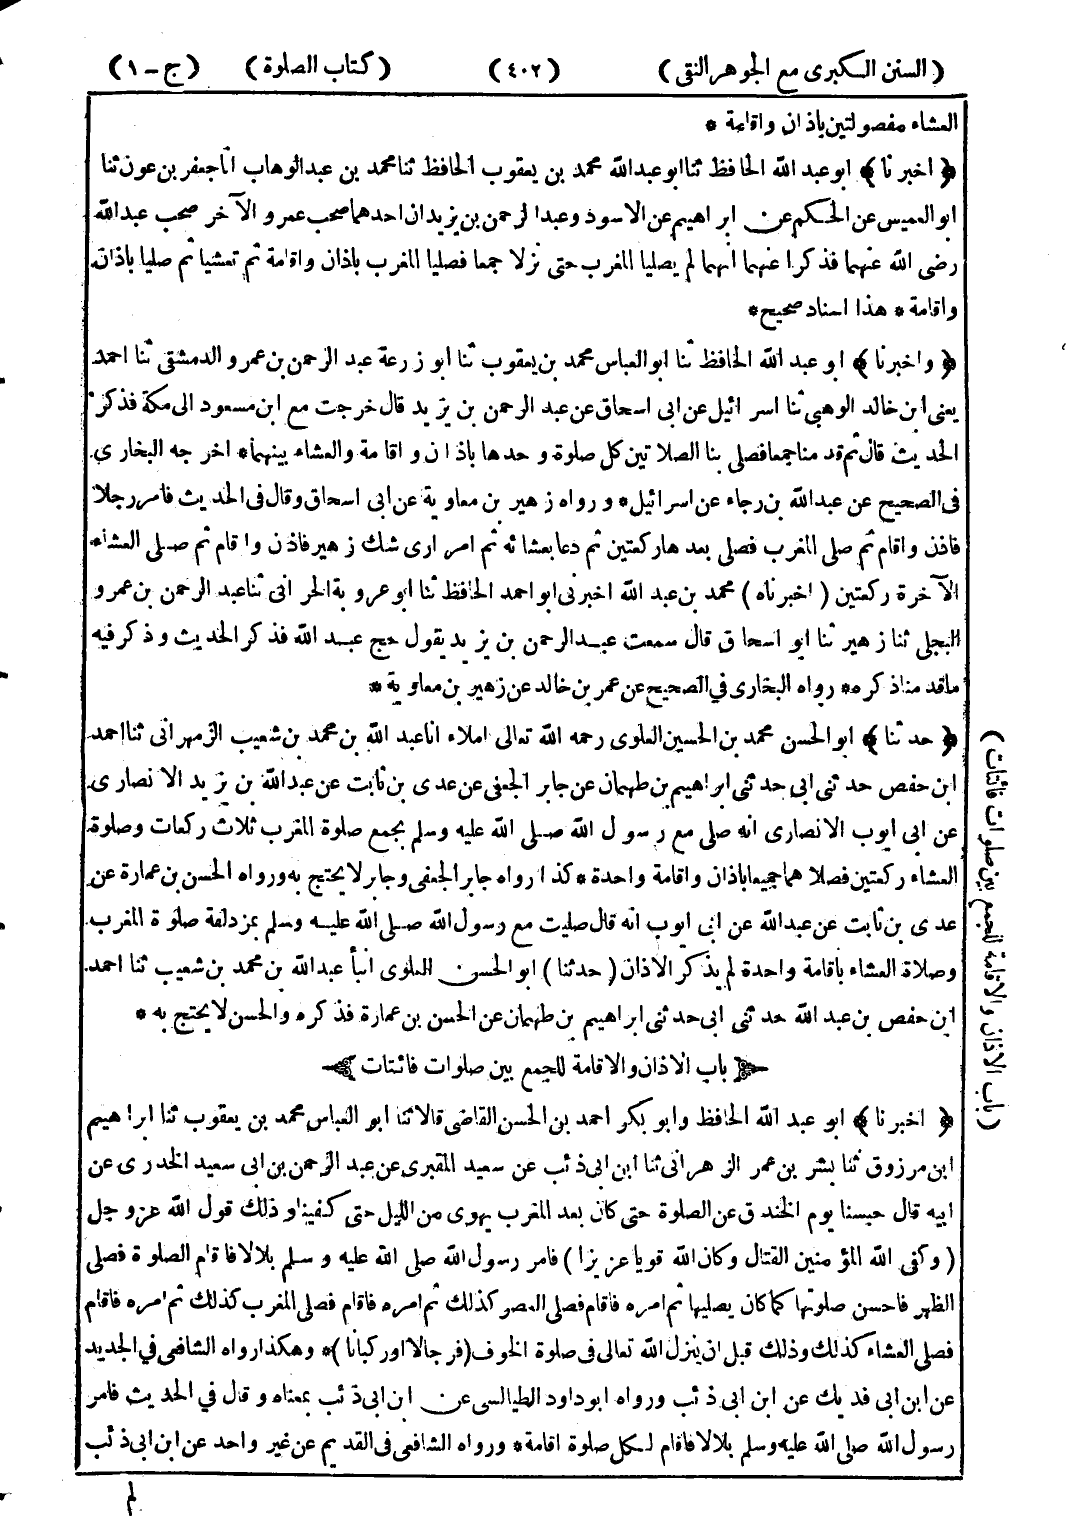 ( السنن الكبرى مع الجوهر النقى ) ( ٤٠٢ ) ( كتاب الصلوة ) ( ج - ١ )
العشاء مفصولتين باذان واقامة *
﴿ اخبرنا ﴾ ابو عبد الله الحافظ ثنا ابو عبدالله محمد بن يعقوب الحافظ ثنا محمد بن عبدالوهاب انا جعفر بن عون ثنا
ابو العميس عن الحكم عن ابراهيم عن الاسود وعبد الرحمن بن يزيد ان احدهما صحب عمر و الآخر صحب عبدالله
رضى الله عنهما فذكرا عنهما انهما لم يصليا المغرب حتى نزلا جمعا فصليا المغرب باذان واقامة ثم تعشيا ثم صليا باذان
واقامة * هذا اسناد صحيح *
﴿ واخبرنا ﴾ ابو عبد الله الحافظ ثنا ابو العباس محمد بن يعقوب ثنا ابو زرعة عبد الرحمن بن عمرو الدمشقى ثنا احمد
يعنى ابن خالد الوهبى ثنا اسرائيل عن ابى اسحاق عن عبد الرحمن بن يزيد قال خرجت مع ابن مسعود الى مكة فذكر
الحديث قال ثم قدمنا جمعا فصلى بنا الصلاتين كل صلوة وحدها باذان واقامة والعشاء بينهما * اخرجه البخارى
فى الصحيح عن عبدالله بن رجاء عن اسرائيل * ورواه زهير بن معاوية عن ابى اسحاق وقال فى الحديث فامر رجلا
فاذن واقام ثم صلى المغرب فصلى بعدها ركعتين ثم دعا بعشائه ثم امر ارى شك زهير فاذن واقام ثم صلى العشاء
الآخرة ركعتين ( اخبرناه ) محمد بن عبد الله اخبرنى ابو احمد الحافظ ثنا ابو عروبة الحرانى ثنا عبد الرحمن بن عمرو
البجلى ثنا زهير ثنا ابو اسحاق قال سمعت عبدالرحمن بن يزيد يقول حج عبد الله فذكر الحديث وذكر فيه
ما قدمنا ذكره * رواه البخارى فى الصحيح عن عمر بن خالد عن زهير بن معاوية *
﴿ حدثنا ﴾ ابو الحسن محمد بن الحسين العلوى رحمه الله تعالى املاء انا عبد الله بن محمد بن شعيب الزمهرانى ثنا احمد
ابن حفص حدثنى ابى حدثنى ابراهيم بن طهمان عن جابر الجعفى عن عدى بن ثابت عن عبدالله بن يزيد الانصارى
عن ابى ايوب الانصارى انه صلى مع رسول الله صلى الله عليه وسلم بجمع صلوة المغرب ثلاث ركعات وصلوة
العشاء ركعتين فصلاهما جميعا باذان واقامة واحدة * كذا رواه جابر الجعفى وجابر لا يحتج به ورواه الحسن بن عمارة عن
عدى بن ثابت عن عبدالله عن ابى ايوب انه قال صليت مع رسول الله صلى الله عليه وسلم بمزدلفة صلوة المغرب
وصلاة العشاء باقامة واحدة لم يذكر الاذان ( حدثنا ) ابو الحسن العلوى انبأ عبدالله بن محمد بن شعيب ثنا احمد
ابن حفص بن عبد الله حدثنى ابى حدثنى ابراهيم بن طهمان عن الحسن بن عمارة فذكره والحسن لا يحتج به *
باب الاذان والاقامة للجمع بين صلوات فائتات
﴿ اخبرنا ﴾ ابو عبد الله الحافظ وابو بكر احمد بن الحسن القاضى قالا ثنا ابو العباس محمد بن يعقوب ثنا ابراهيم
ابن مرزوق ثنا بشر بن عمر الزهرانى ثنا ابن ابى ذئب عن سعيد المقبرى عن عبد الرحمن بن ابى سعيد الخدرى عن
ابيه قال حبسنا يوم الخندق عن الصلوة حتى كان بعد المغرب يهوى من الليل حتى كفينا وذلك قول الله عز وجل
( وكفى الله المؤمنين القتال وكان الله قويا عزيزا ) فامر رسول الله صلى الله عليه وسلم بلالا فاقام الصلوة فصلى
الظهر فاحسن صلوتها كما كان يصليها ثم امره فاقام فصلى العصر كذلك ثم امره فاقام فصلى المغرب كذلك ثم امره فاقام
فصلى العشاء كذلك وذلك قبل ان ينزل الله تعالى فى صلوة الخوف ( فرجالا او ركبانا ) * وهكذا رواه الشافعى فى الجديد
عن ابن ابى فديك عن ابن ابى ذئب ورواه ابوداود الطيالسى عن ابن ابى ذئب بمعناه وقال في الحديث فامر
رسول الله صلى الله عليه وسلم بلالا فاقام لكل صلوة اقامة * ورواه الشافعى فى القديم عن غير واحد عن ابن ابى ذئب
لم
( باب الاذان والاقامة للجمع بين صلوات فائتات )